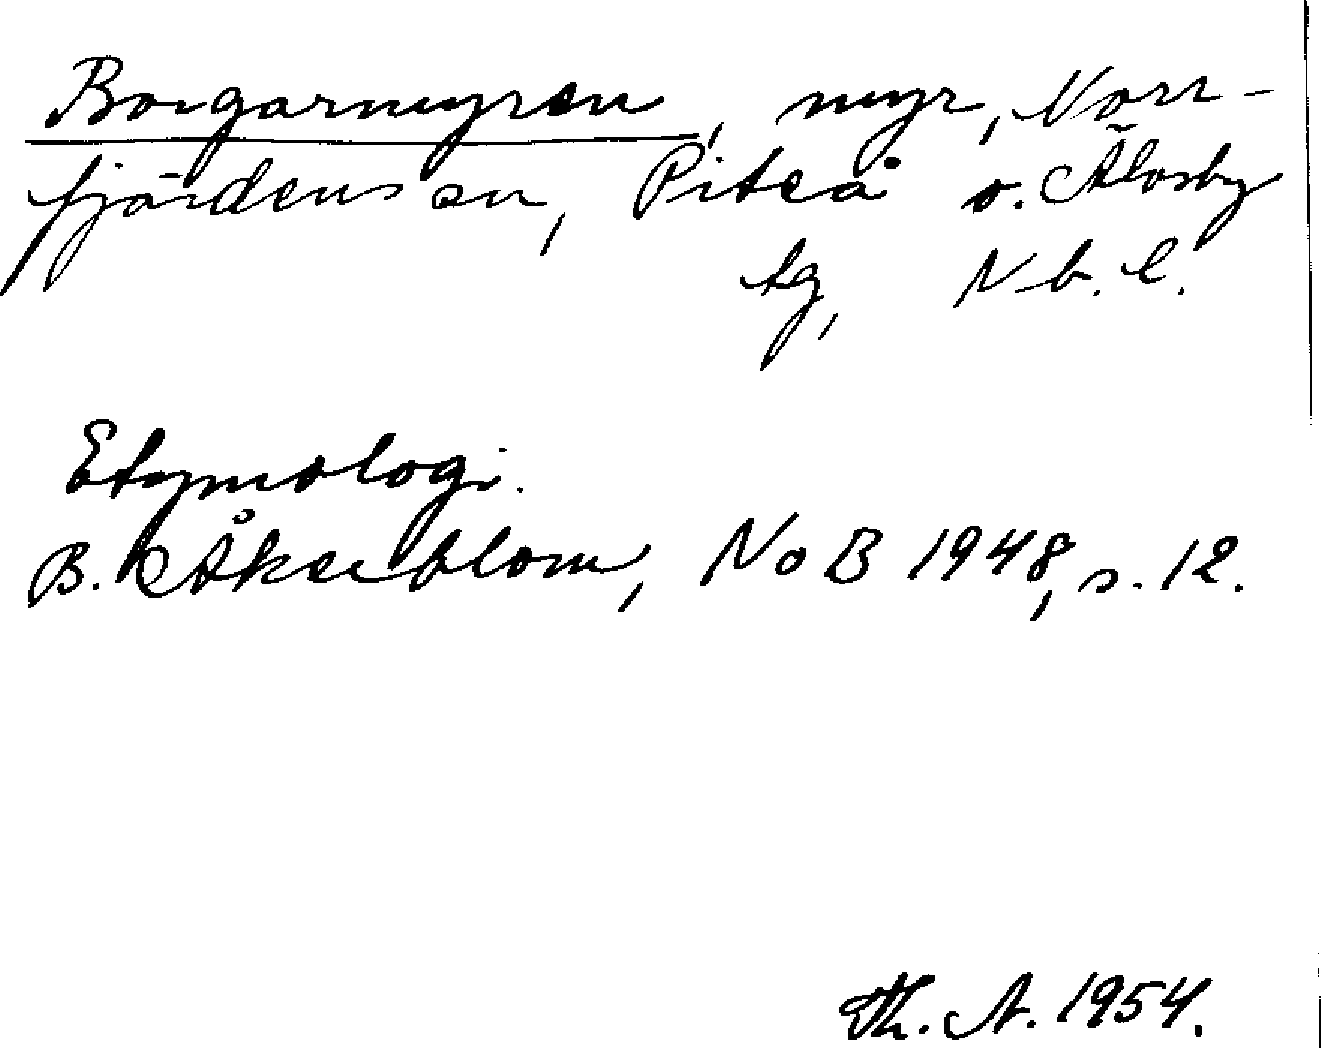 Borgarmyren, myr, Norr-
fjärdens sn, Piteå o. Älvsby
tg, Nb. l.
Etymologi.
B. Åkerblom, NoB 1948, s. 12.
Th. A. 1954.